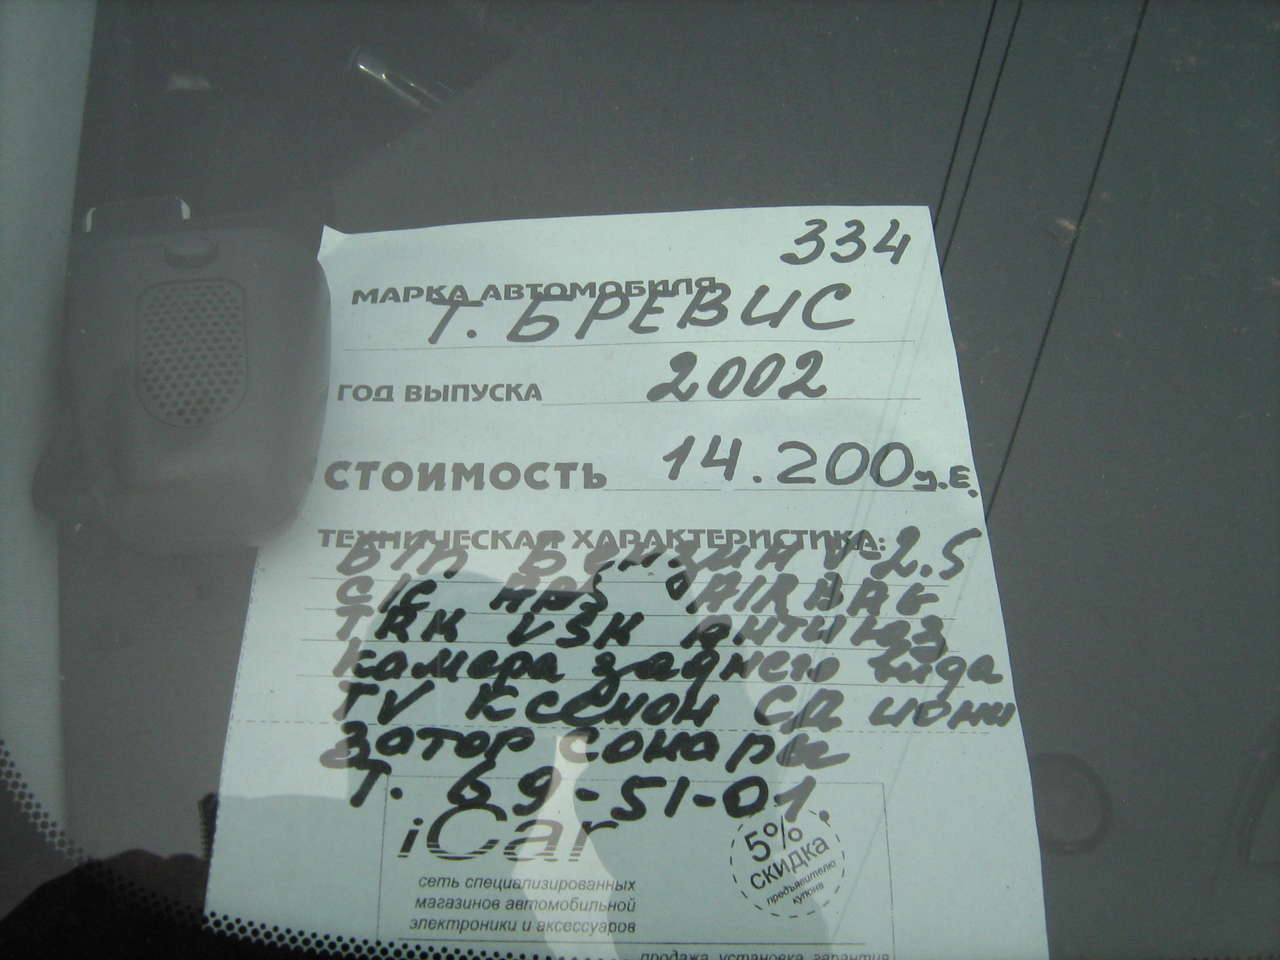 334
МАРКА АВТОМОБИЛЯ
Т. БРЕВИС
ГОД ВЫПУСКА 2002
СТОИМОСТЬ 14.200 у.Е.
ТЕХНИЧЕСКАЯ ХАРАКТЕРИСТИКА:
Б/П БЕНЗИН V-2.5
С/С ABS AIRBAG
TRK VSK антиюз
камера заднего вида
TV Ксенон СД иони
затор сонары
Т. 69-51-01
iCar
5% СКИДКА
предъявителю
купона
сеть специализированных
магазинов автомобильной
электроники и аксессуаров
продажа установка гарантия